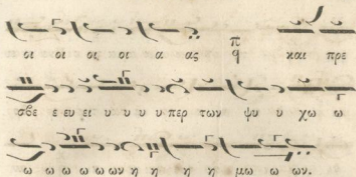 οι οι οι οι α ας π q και πρε
σβε ε ευ ει υ υ υ υ περ των ψυ υ χω ω
ω ω ω ω ω ων η η η η μω ω ων.